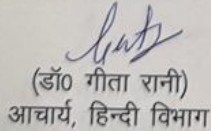 (डॉ0 गीता रानी)
आचार्य, हिन्दी विभाग